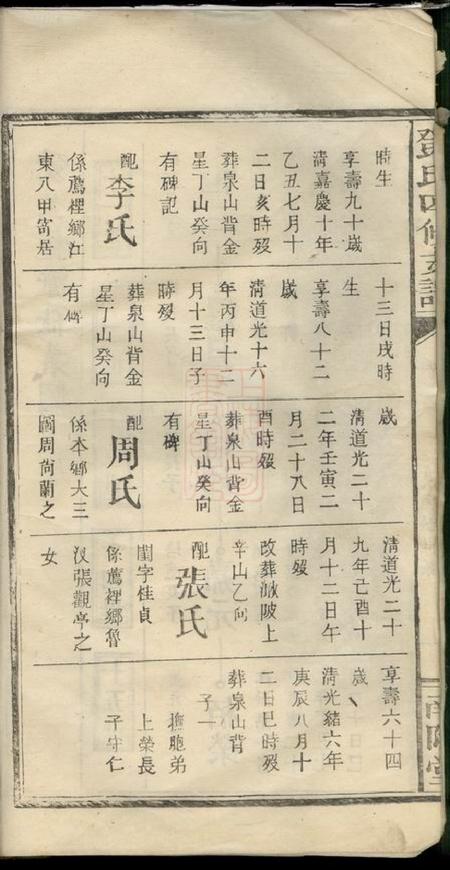 時生
享壽九十歲
清嘉慶十年
乙丑七月十
二日亥時歿
葬泉山背金
星丁山癸向
有碑記
配李氏
係薦裡鄉江
東八甲寄居
十三日戌時
生
享壽八十二
歲
清道光十六
年丙申十二
月十三日子
時歿
葬泉山背金
星丁山癸向
有碑
歲
清道光二十
二年壬寅二
月二十八日
酉時歿
葬泉山背金
星丁山癸向
有碑
配周氏
係本鄉大三
圖周尚蘭之
清道光二十
九年己酉十
月十二日午
時歿
改葬陂上
辛山乙向
配張氏
閨字桂貞
係薦裡鄉魯
汊張觀亭之
女
享壽六十四
歲
清光緒六年
庚辰八月十
二日巳時歿
葬泉山背
子一
撫胞弟
上榮長
子守仁
鄧氏四修支譜
南陽堂